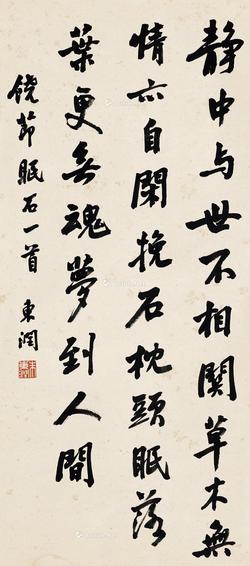 静中与世不相関草木無
情亦自閑挽石枕頭眠落
葉更無魂夢到人間
饶節眠石一首 東润